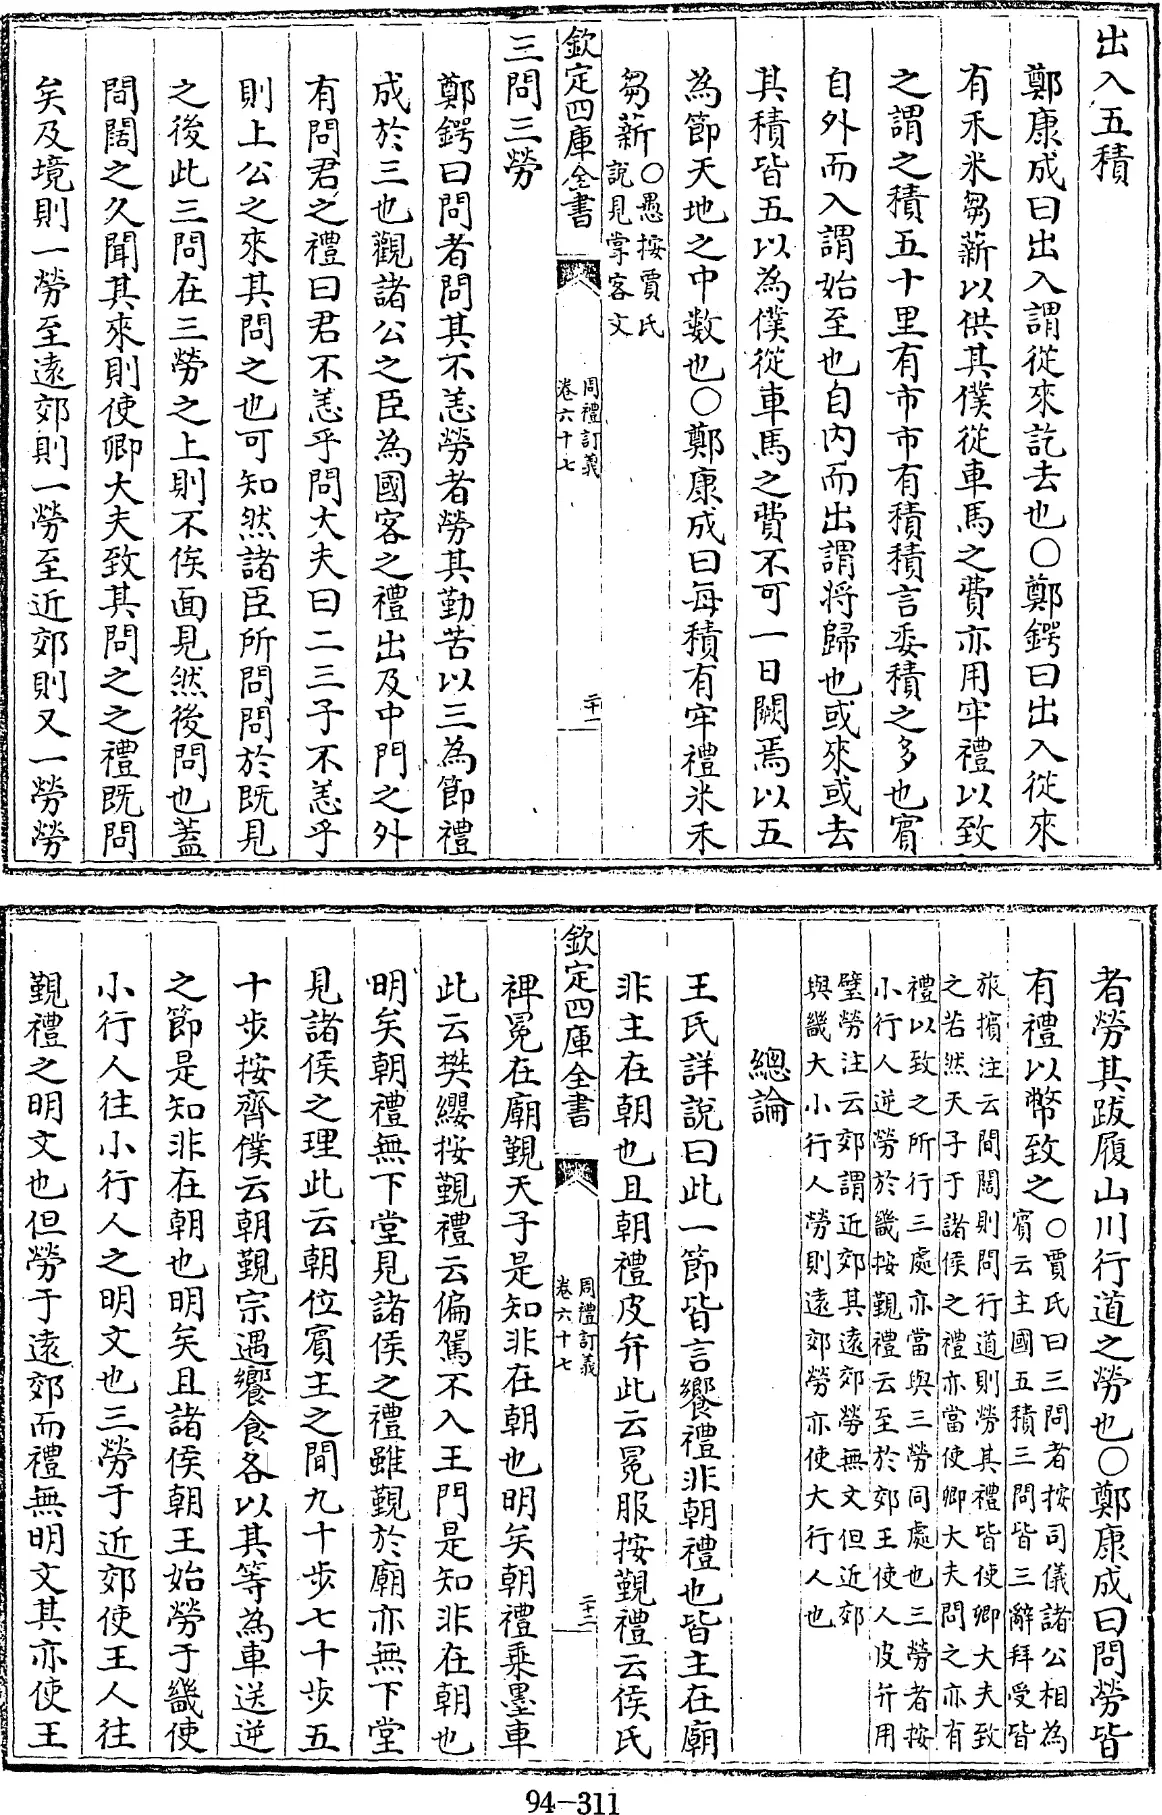 出入五積
鄭康成曰出入謂從來訖去也○鄭鍔曰出入從來
有禾米芻薪以供其僕從車馬之費亦用牢禮以致
之謂之積五十里有市市有積積言委積之多也賓
自外而入謂始至也自内而出謂將歸也或來或去
其積皆五以為僕從車馬之費不可一日闕焉以五
為節天地之中數也○鄭康成曰每積有牢禮米禾
芻薪○愚按賈氏
說見掌客文
欽定四庫全書
周禮訂義
卷六十七
二十一
三問三勞
鄭鍔曰問者問其不恙勞者勞其勤苦以三為節禮
成於三也觀諸公之臣為國客之禮出及中門之外
有問君之禮曰君不恙乎問大夫曰二三子不恙乎
則上公之來其問之也可知然諸臣所問問於既見
之後此三問在三勞之上則不俟面見然後問也蓋
間闊之久聞其來則使卿大夫致其問之之禮既問
矣及境則一勞至遠郊則一勞至近郊則又一勞勞
者勞其跋履山川行道之勞也○鄭康成曰問勞皆
有禮以幣致之○賈氏曰三問者按司儀諸公相為
賓云主國五積三問皆三辭拜受皆
旅擯注云間闊則問行道則勞其禮皆使卿大夫致
之若然天子于諸侯之禮亦當使卿大夫問之亦有
禮以致之所行三處亦當與三勞同處也三勞者按
小行人逆勞於畿按覲禮云至於郊王使人皮弁用
璧勞注云郊謂近郊其遠郊勞無文但近郊
與畿大小行人勞則遠郊勞亦使大行人也
總論
王氏詳說曰此一節皆言饗禮非朝禮也皆主在廟
非主在朝也且朝禮皮弁此云冕服按覲禮云侯氏
欽定四庫全書
周禮訂義
卷六十七
二十二
裨冕在廟覲天子是知非在朝也明矣朝禮乘墨車
此云樊纓按覲禮云偏駕不入王門是知非在朝也
明矣朝禮無下堂見諸侯之禮雖覲於廟亦無下堂
見諸侯之理此云朝位賓主之間九十步七十步五
十步按齊僕云朝覲宗遇饗食各以其等為車送逆
之節是知非在朝也明矣且諸侯朝王始勞于畿使
小行人往小行人之明文也三勞于近郊使王人往
覲禮之明文也但勞于遠郊而禮無明文其亦使王
94-311